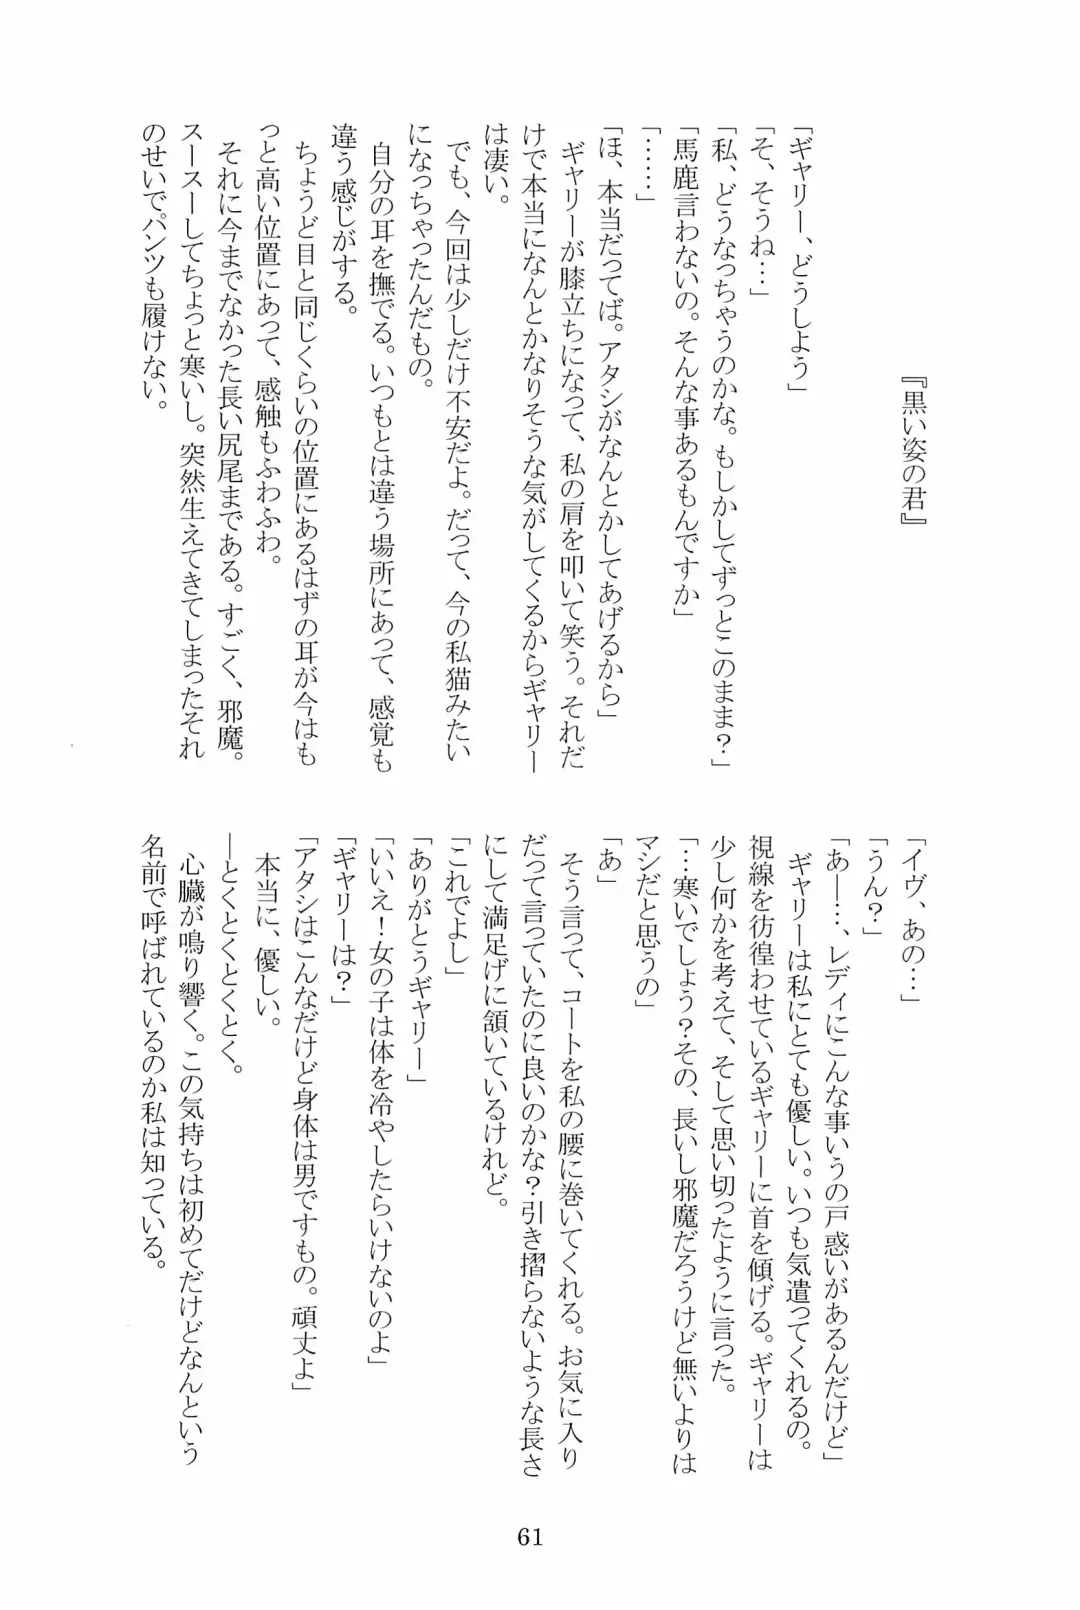 『黒い姿の君』
「ギャリー、どうしよう」
「そ、そうね…」
「私、どうなっちゃうのかな。もしかしてずっとこのまま？」
「馬鹿言わないの。そんな事あるもんですか」
「……」
「ほ、本当だってば。アタシがなんとかしてあげるから」
ギャリーが膝立ちになって、私の肩を叩いて笑う。それだ
けで本当になんとかなりそうな気がしてくるからギャリー
は凄い。
でも、今回は少しだけ不安だよ。だって、今の私猫みたい
になっちゃったんだもの。
自分の耳を撫でる。いつもとは違う場所にあって、感覚も
違う感じがする。
ちょうど目と同じくらいの位置にあるはずの耳が今はも
っと高い位置にあって、感触もふわふわ。
それに今までなかった長い尻尾まである。すごく、邪魔。
スースーしてちょっと寒いし。突然生えてきてしまったそれ
のせいでパンツも履けない。
「イヴ、あの…」
「うん？」
「あー…、レディにこんな事いうの戸惑いがあるんだけど」
ギャリーは私にとても優しい。いつも気遣ってくれるの。
視線を彷徨わせているギャリーに首を傾げる。ギャリーは
少し何かを考えて、そして思い切ったように言った。
「…寒いでしょう？その、長いし邪魔だろうけど無いよりは
マシだと思うの」
「あ」
そう言って、コートを私の腰に巻いてくれる。お気に入り
だって言っていたのに良いのかな？引き摺らないような長さ
にして満足げに頷いているけれど。
「これでよし」
「ありがとうギャリー」
「いいえ！女の子は体を冷やしたらいけないのよ」
「ギャリーは？」
「アタシはこんなだけど身体は男ですもの。頑丈よ」
本当に、優しい。
―とくとくとくとく。
心臓が鳴り響く。この気持ちは初めてだけどなんという
名前で呼ばれているのか私は知っている。
61